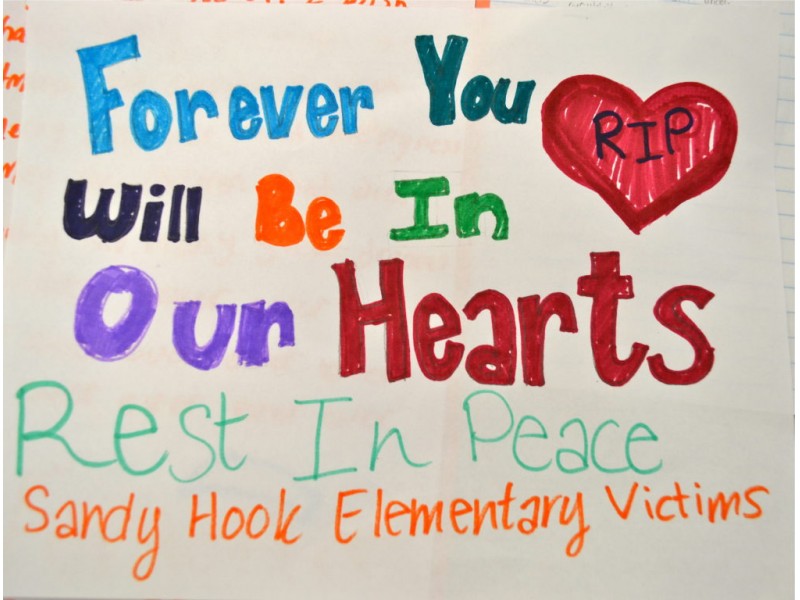 Forever You
RIP
Will Be In
Our Hearts
Rest In Peace
Sandy Hook Elementary Victims